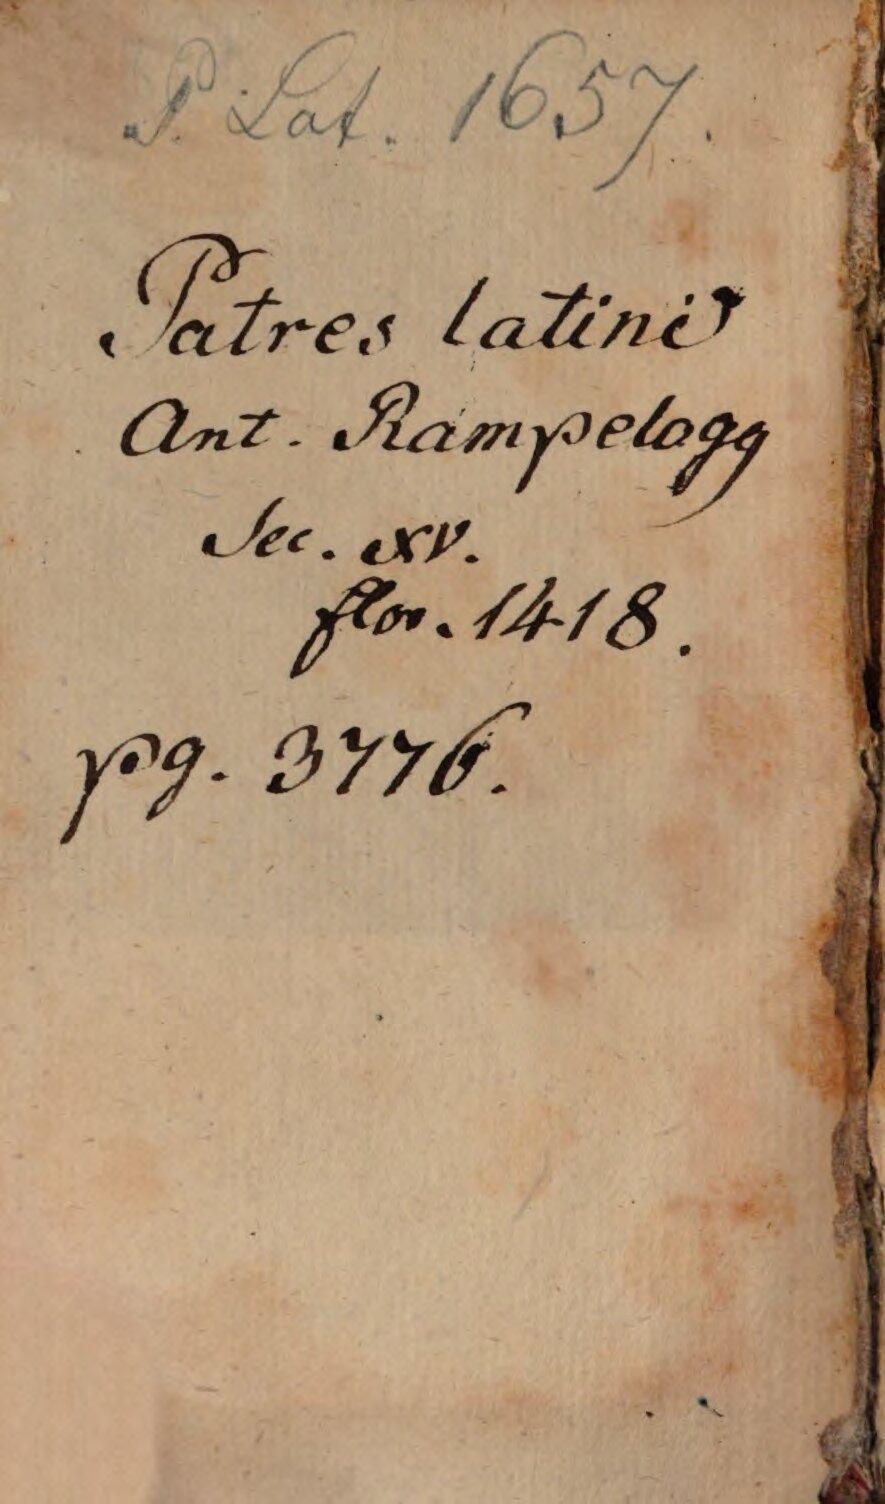 P. Lat. 1657.
Patres latini
Ant. Rampelogg
Sec. XV.
flor. 1418.
pg. 3776.